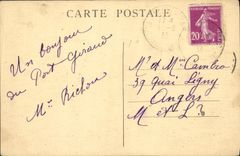 CARTE POSTALE
Un bonjour
du Port Giraud
Mme Richou
20
Mr et Mme Cambro
39 quai Ligny
Angers
M et L